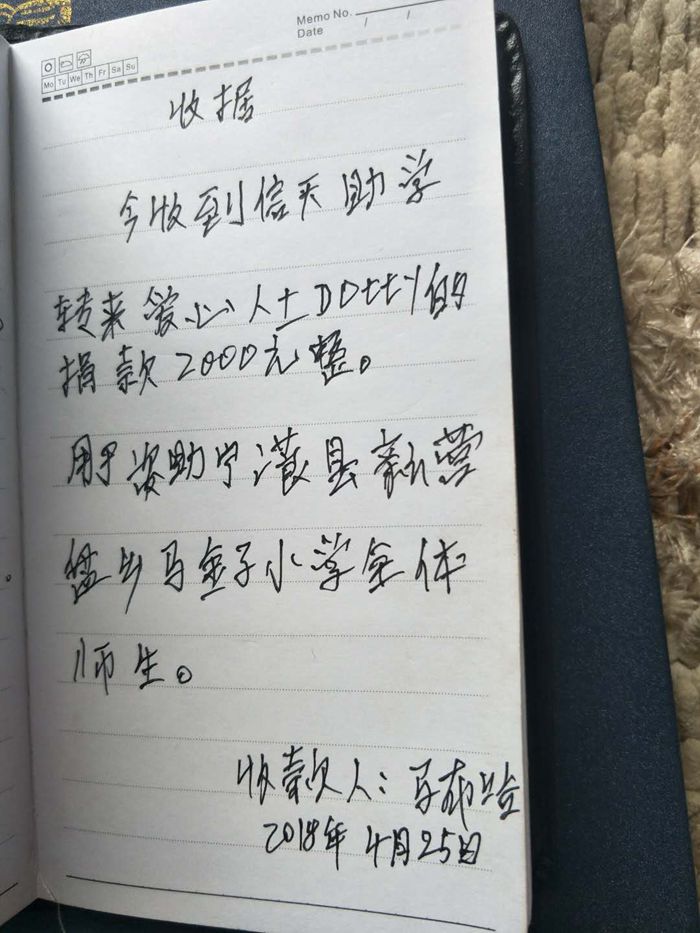 Memo No.
Date / /
Mo Tu We Th Fr Sa Su
收据
今收到信天助学
转来爱心人士Dotty的
捐款2000元整。
用于资助宁蒗县新营
盘乡马金子小学全体
师生。
收款人:马布哈
2018年4月25日